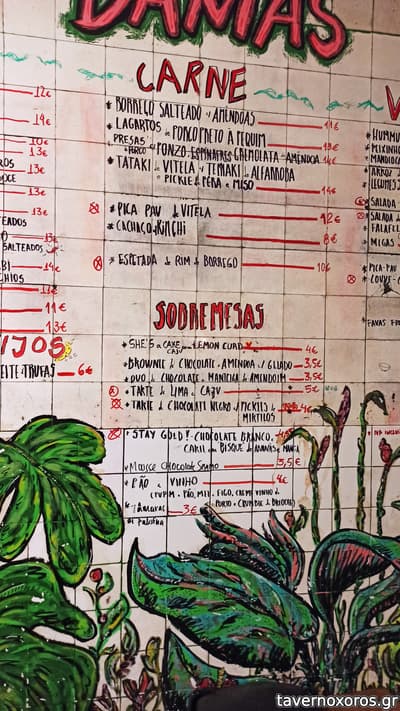 DAMAS
CARNE
* BORREGO SALTEADO c/ AMÊNDOAS 11€
* LAGARTOS de PORCO PRETO À PEQUIM 13€
PRESAS de PORCO PONZO GREMOLATA AMÊNDOA 14€
* TATAKI de VITELA c/ TEMAKI de ALFARROBA
PICKLE d PÊRA e MISO 14€
* PICA PAU de VITELA 12€
* CACHAÇO KIMCHI 8€
* ESPETADA de RIM de BORREGO 10€
SOBREMESAS
* SHE'S a CAKE LEMON CURD 4€
CAJU
BROWNIE de CHOCOLATE e AMENDOA c/ GELADO 3,5€
* OVO de CHOCOLATE e MANTEIGA de AMENDOIM 3,5€
* TARTE de LIMA e CAJU 5€
* TARTE de CHOCOLATE NEGRO c/ PICKLES de 4€
MIRTILOS
* STAY GOLD! - CHOCOLATE BRANCO,
CARIL BISQUE de ANANÁS e MANGA
Mousse Chocolate 3,5€
* PÃO e VINHO 4€
(CRUMB. PÃO, MEL, FIGO, CREME VINHO d
PORTO e CRUMBLE d BRIOCHE)
* Tâmaras 3€
12€
14€
10€
13€
13€
13€
13€
TEADOS 13€
SALTEADOS
14€
11€
13€
IJOS
EITE+TRUFAS 6€
V
HUMMU
MIXINHO
MANDIOCA
LEGUMES
SALADA
SALADA d
FALAFEL
MIGAS
PICA-PAU
COUVE-C
FAVAS
tavernoxoros.gr